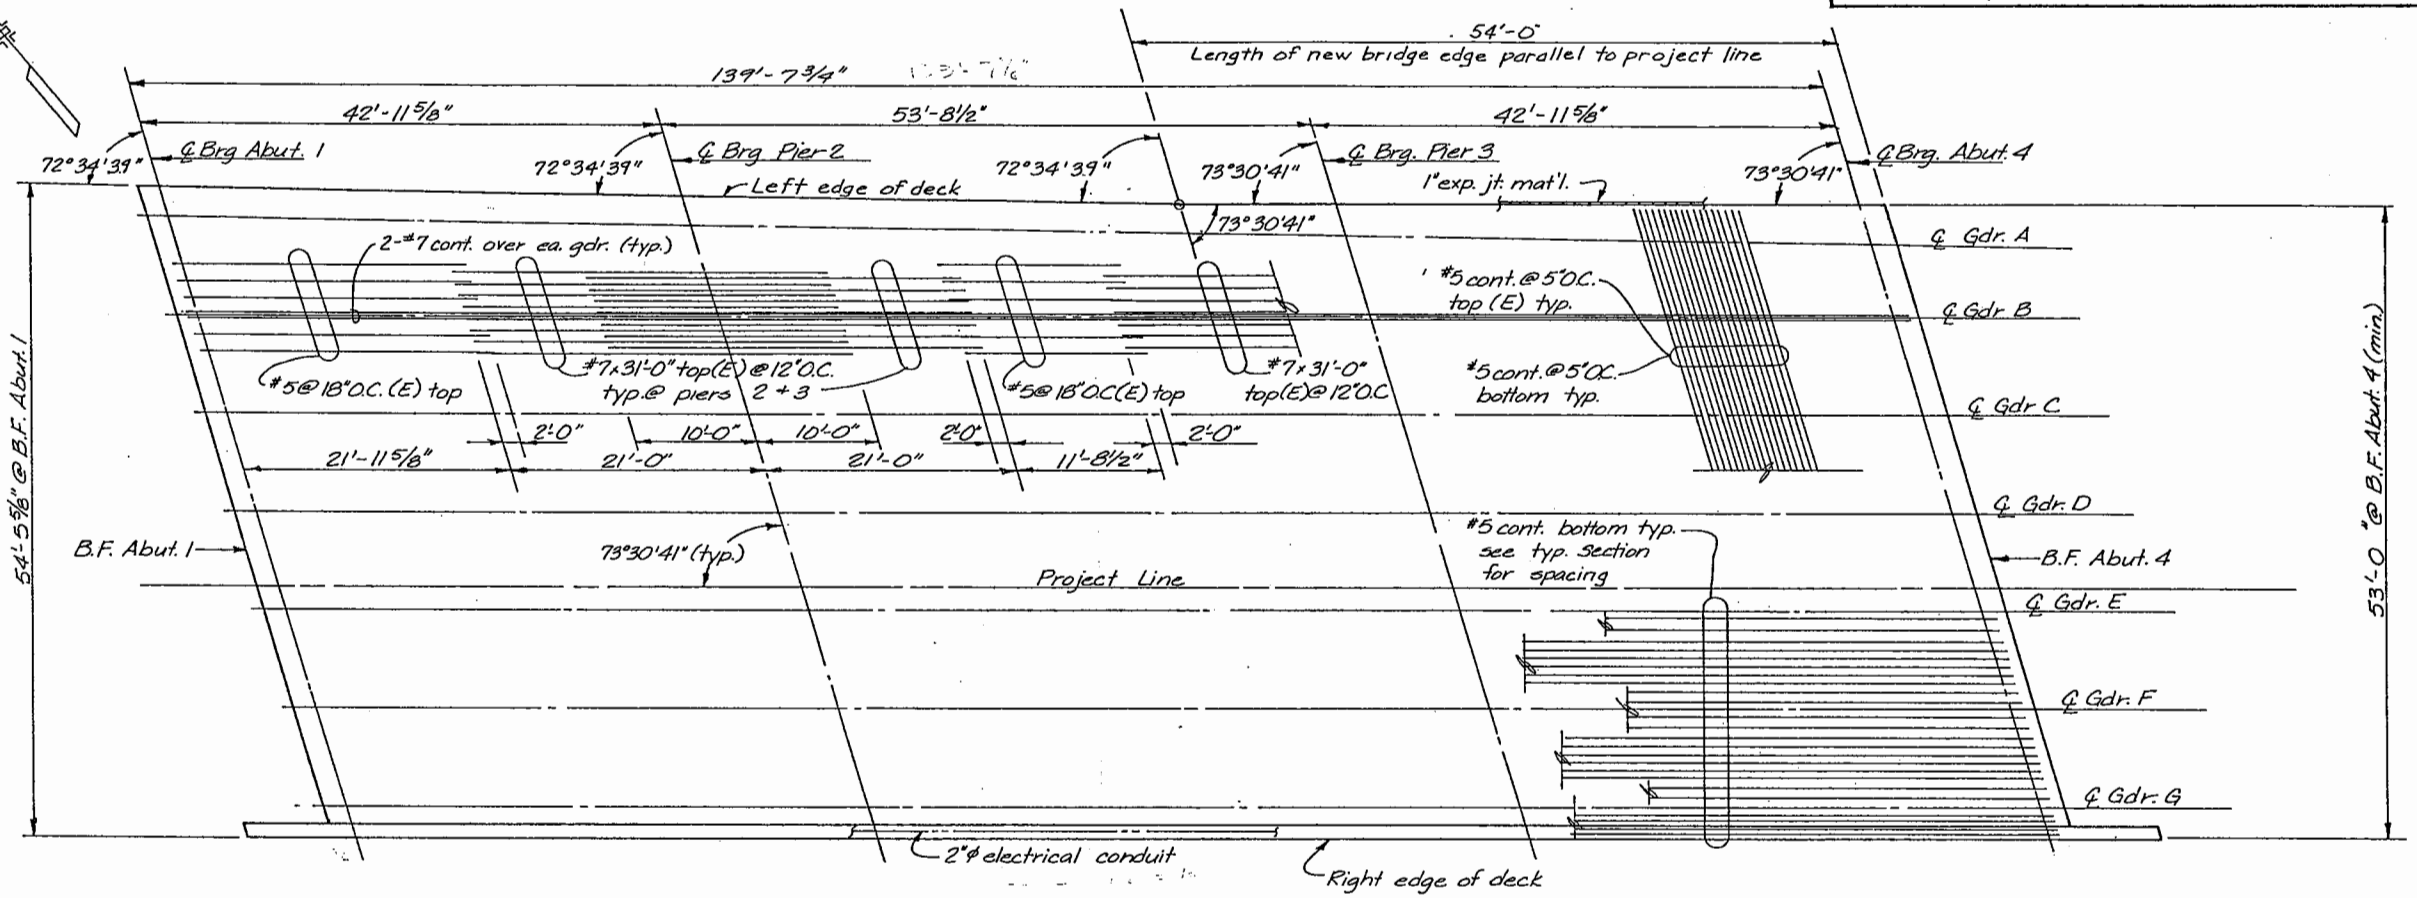 54'-0"
Length of new bridge edge parallel to project line
139'-7 3/4"
42'-11 5/8"
53'-8 1/2"
42'-11 5/8"
72°34'39"
℄ Brg Abut. 1
72°34'39"
℄ Brg Pier 2
72°34'39"
73°30'41"
℄ Brg. Pier 3
73°30'41"
℄ Brg. Abut. 4
Left edge of deck
1" exp. jt. mat'l.
73°30'41"
℄ Gdr. A
2-#7 cont. over ea. gdr. (typ.)
#5 cont. @ 5" O.C.
top (E) typ.
℄ Gdr B
#5 @ 18" O.C. (E) top
#7 x 31'-0" top (E) @ 12" O.C.
typ. @ piers 2 + 3
#5 @ 18" O.C (E) top
#7 x 31'-0"
top (E) @ 12" O.C
#5 cont. @ 5" O.C.
bottom typ.
℄ Gdr C
2'-0"
10'-0"
10'-0"
2'-0"
2'-0"
21'-11 5/8"
21'-0"
21'-0"
11'-8 1/2"
54'-5 5/8" @ B.F. Abut. 1
53'-0" @ B.F. Abut. 4 (min.)
℄ Gdr. D
B.F. Abut. 1
73°30'41" (typ.)
#5 cont. bottom typ.
see typ. Section
for spacing
B.F. Abut. 4
Project Line
℄ Gdr. E
℄ Gdr. F
℄ Gdr. G
2"ø electrical conduit
Right edge of deck